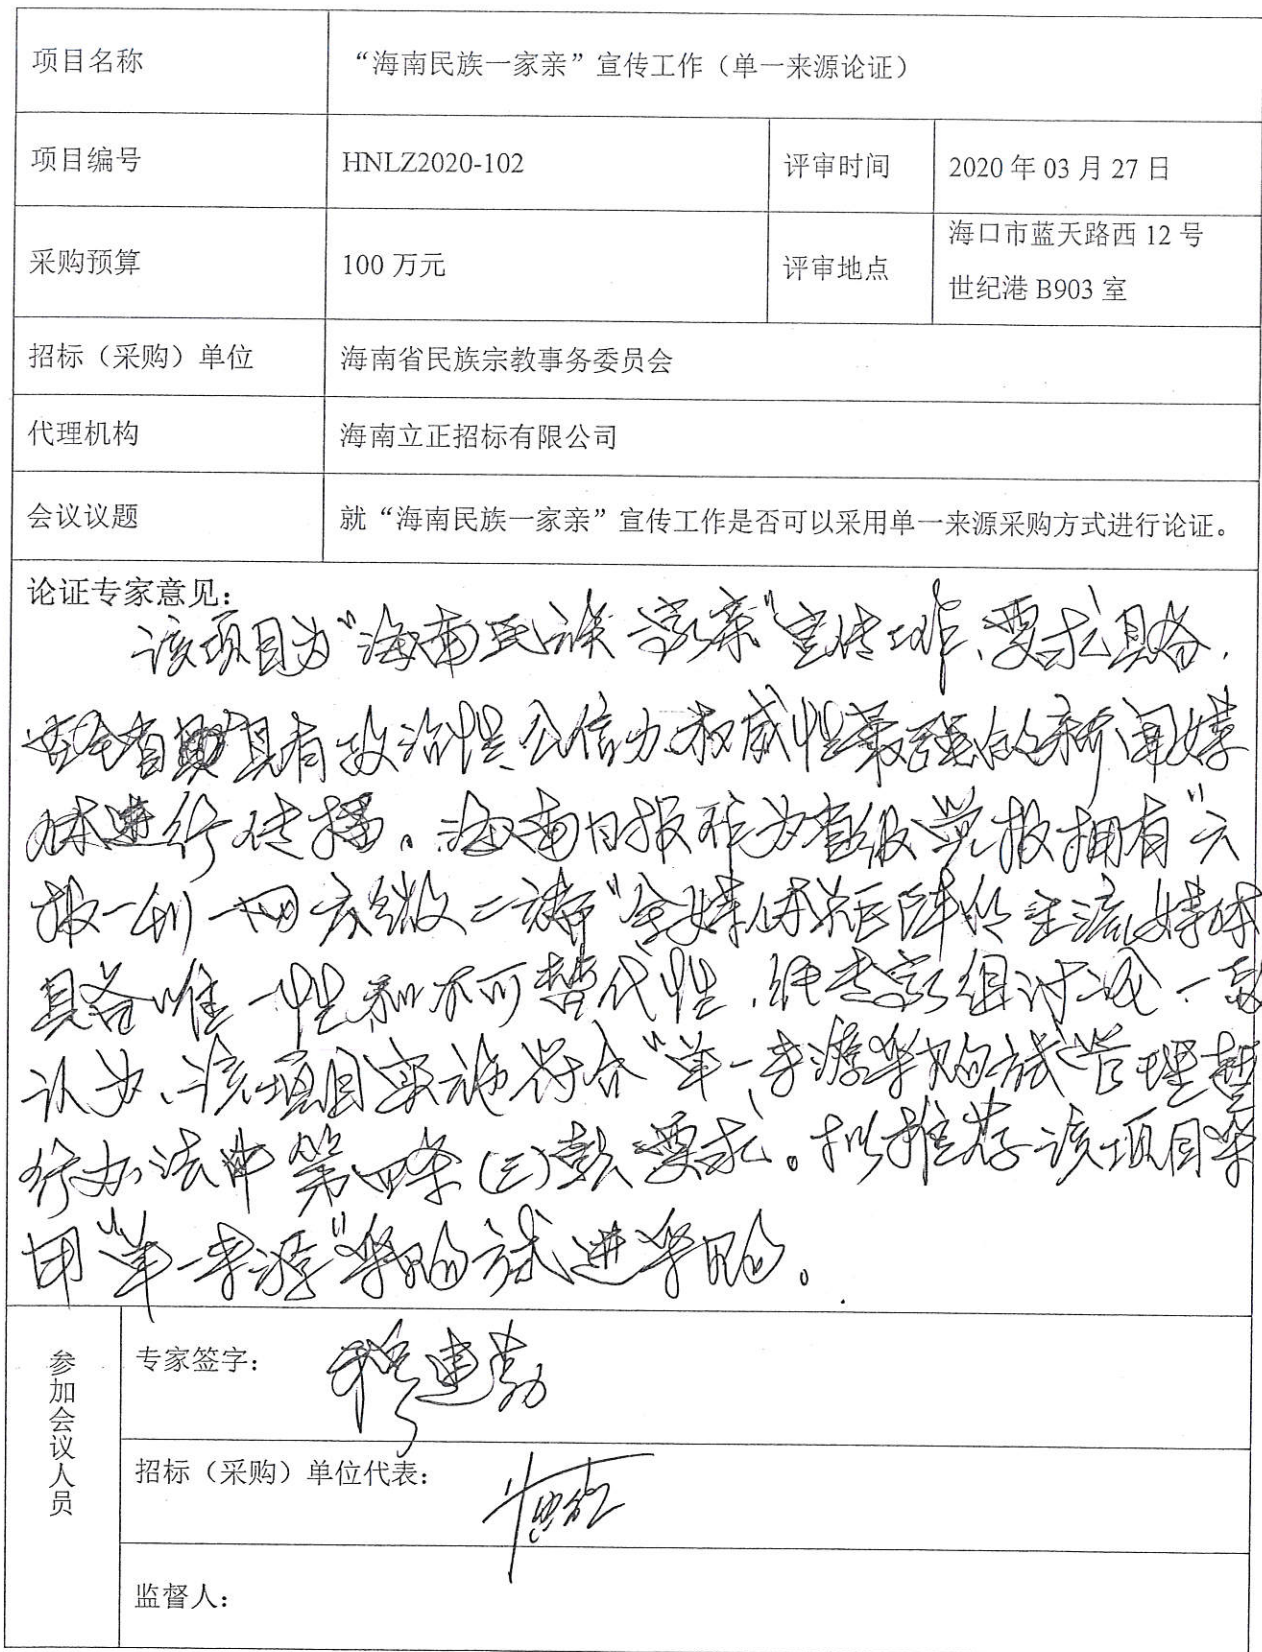 项目名称 “海南民族一家亲”宣传工作（单一来源论证）
项目编号 HNLZ2020-102 评审时间 2020 年 03 月 27 日
采购预算 100 万元 评审地点 海口市蓝天路西 12 号
世纪港 B903 室
招标（采购）单位 海南省民族宗教事务委员会
代理机构 海南立正招标有限公司
会议议题 就“海南民族一家亲”宣传工作是否可以采用单一来源采购方式进行论证。
论证专家意见：
该项目为“海南民族一家亲”宣传工作、要求具备，
在全省具有政治性、公信力、权威性最强的新闻媒
体进行传播。海南日报作为省级党报拥有“六
报一刊一网六微二端”全媒体矩阵的主流媒体
具备唯一性和不可替代性，经专家组讨论一致
认为、该项目实施符合“单一来源采购方式”管理暂
行办法中第四条（三）款要求。拟推荐该项目采
用“单一来源”采购方式进采购。
参加会议人员
专家签字：
招标（采购）单位代表：
监督人：